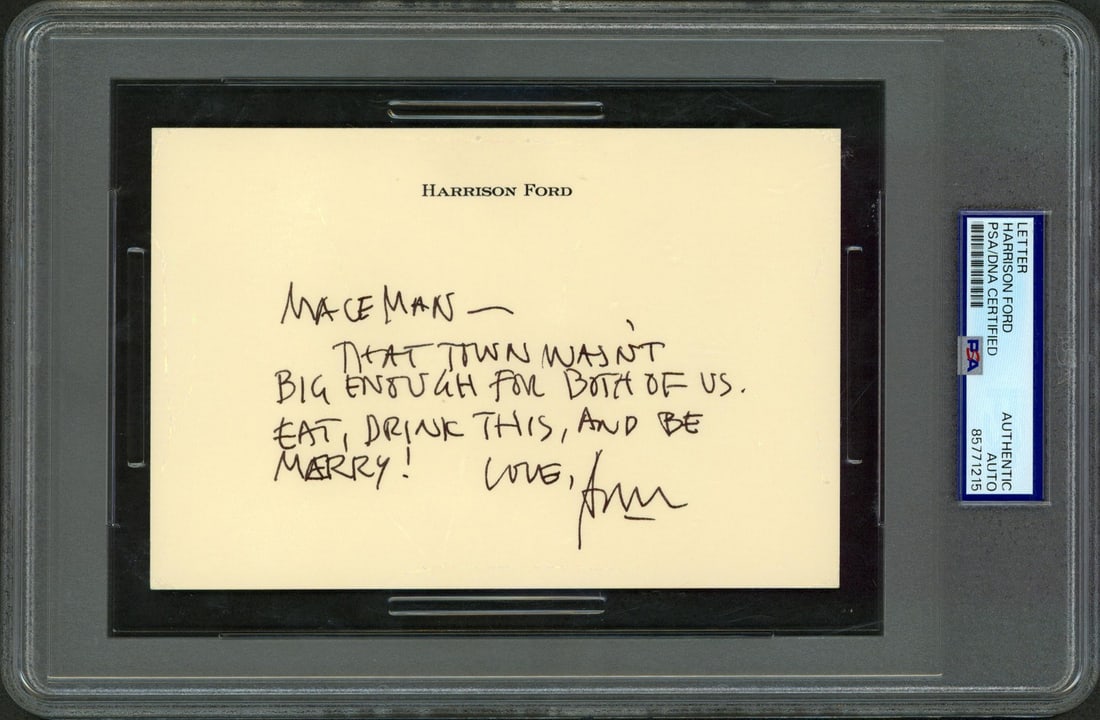 HARRISON FORD
MACEMAN —
THAT TOWN WASN'T
BIG ENOUGH FOR BOTH OF US.
EAT, DRINK THIS, AND BE
MERRY! LOVE,
LETTER
HARRISON FORD
PSA/DNA CERTIFIED
PSA
AUTHENTIC
AUTO
85771215